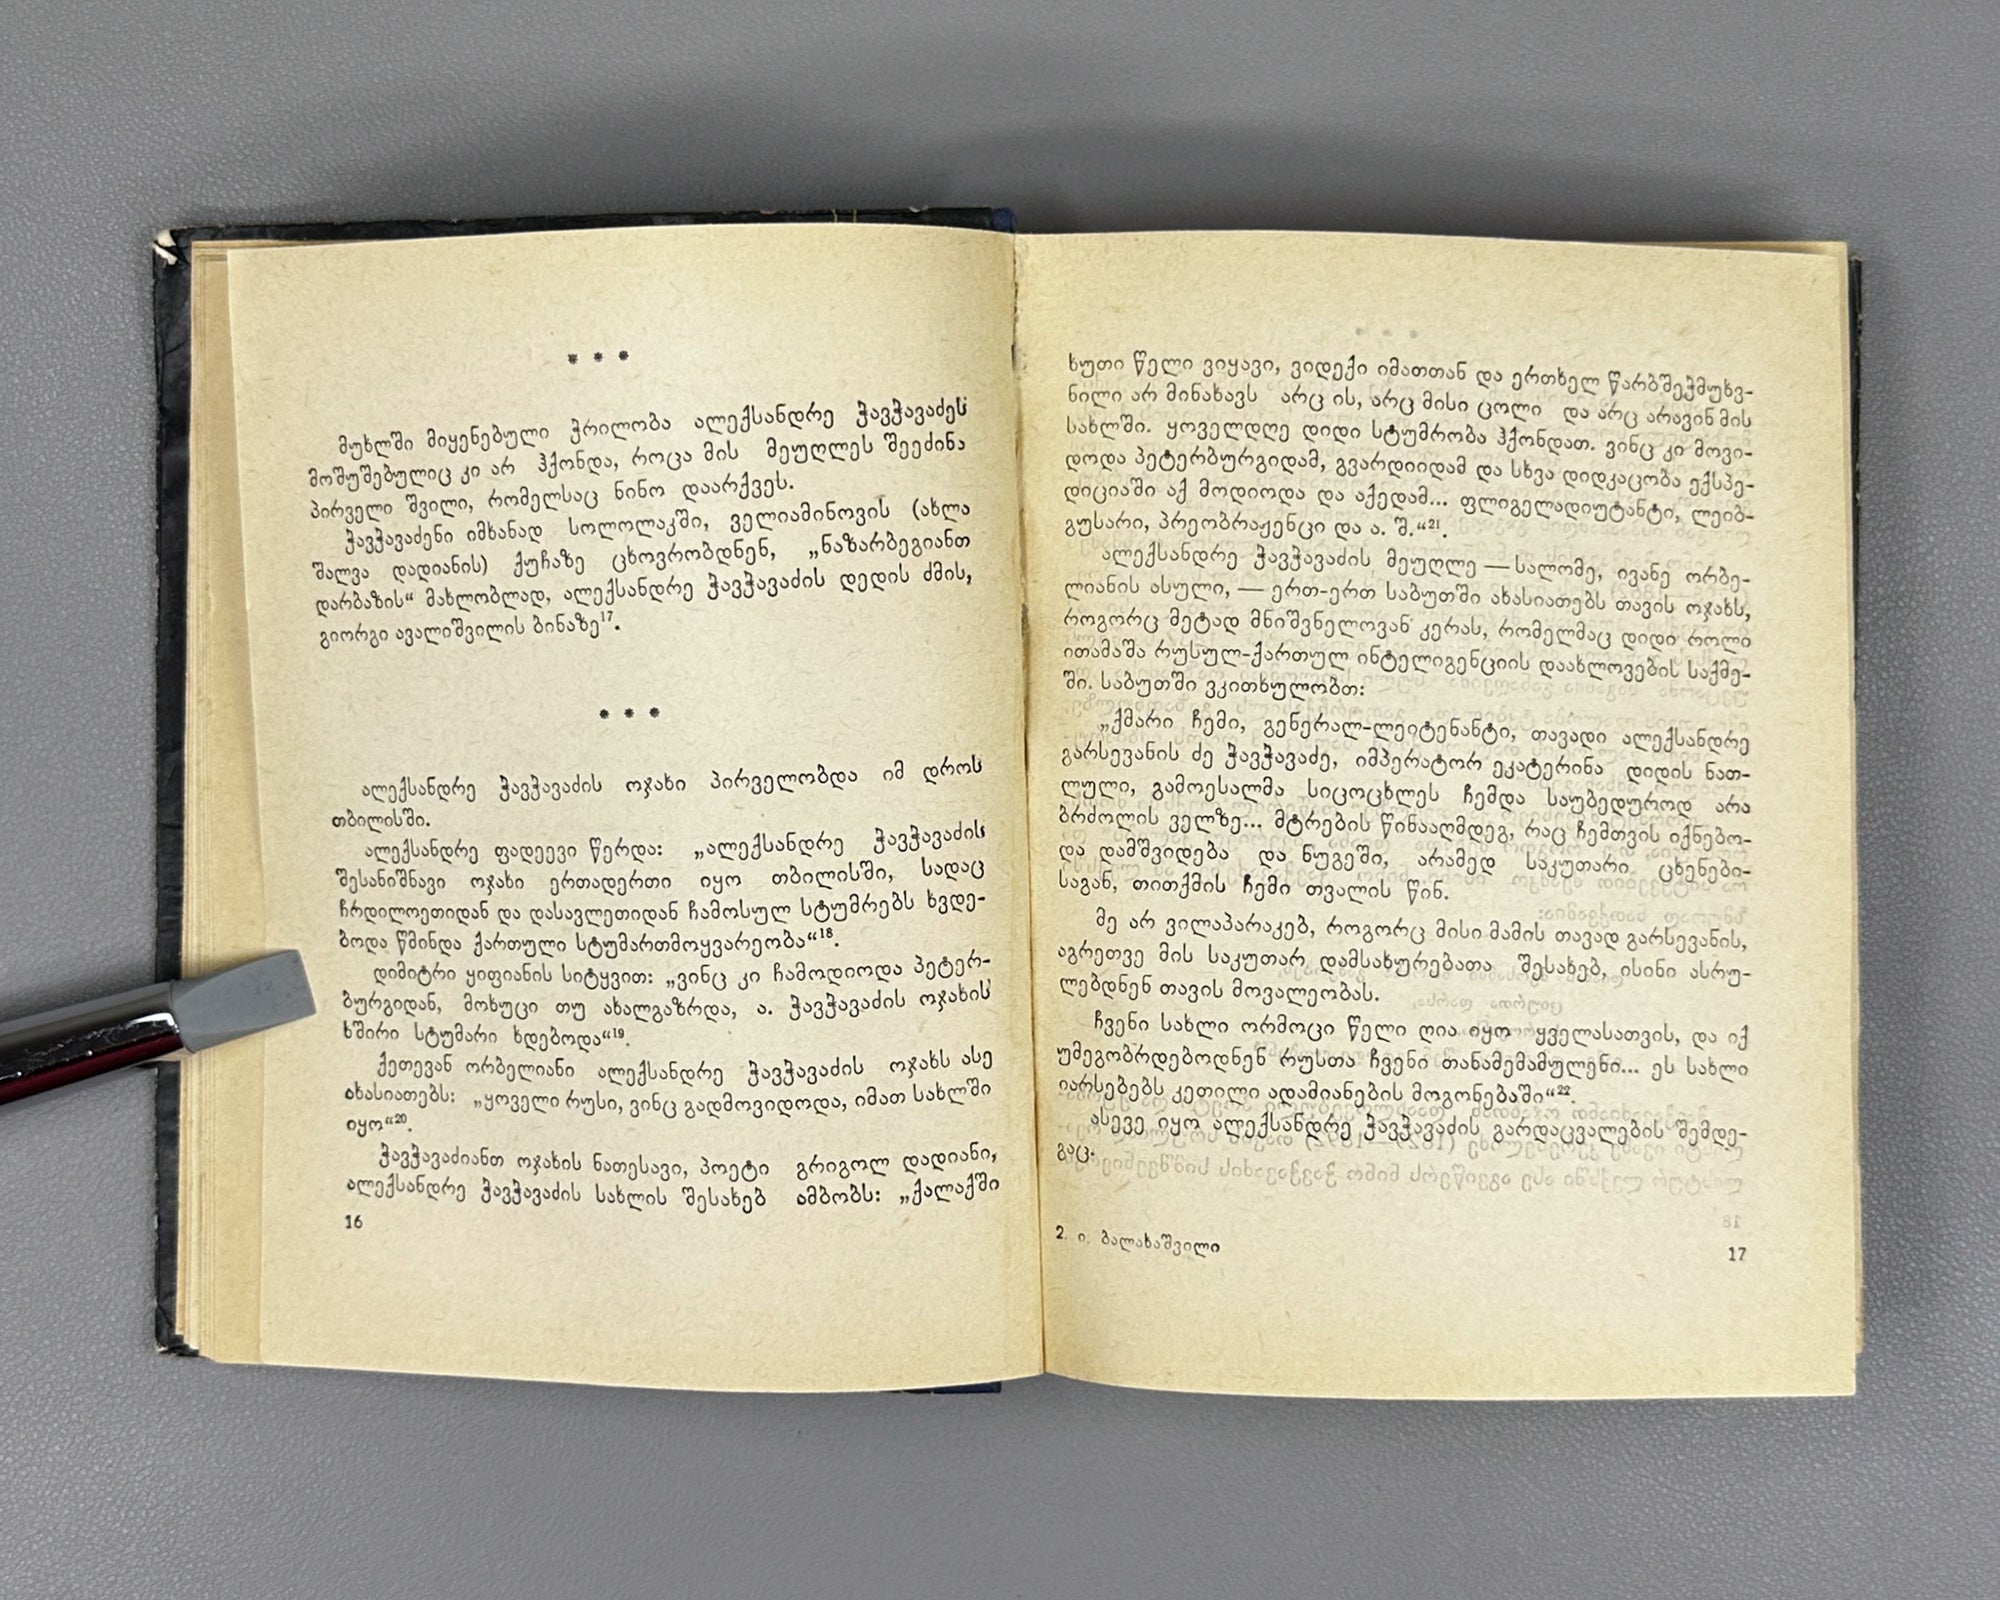 * * *
მუხლში მიყენებული ჭრილობა ალექსანდრე ჭავჭავაძეს
მოშუშებულიც კი არ ჰქონდა, როცა მის მეუღლეს შეეძინა
პირველი შვილი, რომელსაც ნინო დაარქვეს.
ჭავჭავაძენი იმხანად სოლოლაკში, ველიამინოვის (ახლა
შალვა დადიანის) ქუჩაზე ცხოვრობდნენ, „ნაზარბეგიანთ
დარბაზის“ მახლობლად, ალექსანდრე ჭავჭავაძის დედის ძმის,
გიორგი ავალიშვილის ბინაზე17.
* * *
ალექსანდრე ჭავჭავაძის ოჯახი პირველობდა იმ დროს
თბილისში.
ალექსანდრე ფადეევი წერდა: „ალექსანდრე ჭავჭავაძის
შესანიშნავი ოჯახი ერთადერთი იყო თბილისში, სადაც
ჩრდილოეთიდან და დასავლეთიდან ჩამოსულ სტუმრებს ხვდე-
ბოდა წმინდა ქართული სტუმართმოყვარეობა“18.
დიმიტრი ყიფიანის სიტყვით: „ვინც კი ჩამოდიოდა პეტერ-
ბურგიდან, მოხუცი თუ ახალგაზრდა, ა. ჭავჭავაძის ოჯახის
ხშირი სტუმარი ხდებოდა“19.
ქეთევან ორბელიანი ალექსანდრე ჭავჭავაძის ოჯახს ასე
ახასიათებს: „ყოველი რუსი, ვინც გადმოვიდოდა, იმათ სახლში
იყო“20.
ჭავჭავაძიანთ ოჯახის ნათესავი, პოეტი გრიგოლ დადიანი,
ალექსანდრე ჭავჭავაძის სახლის შესახებ ამბობს: „ქალაქში
16
ხუთი წელი ვიყავი, ვიდექი იმათთან და ერთხელ წარბშეჭმუხვ-
ნილი არ მინახავს არც ის, არც მისი ცოლი და არც არავინ მის
სახლში. ყოველდღე დიდი სტუმრობა ჰქონდათ. ვინც კი მოვი-
დოდა პეტერბურგიდამ, გვარდიიდამ და სხვა დიდკაცობა ექსპე-
დიციაში აქ მოდიოდა და აქედამ... ფლიგელადიუტანტი, ლეიბ-
გუსარი, პრეობრაჟენცი და ა. შ.“21.
ალექსანდრე ჭავჭავაძის მეუღლე — სალომე, ივანე ორბე-
ლიანის ასული, — ერთ-ერთ საბუთში ახასიათებს თავის ოჯახს,
როგორც მეტად მნიშვნელოვან კერას, რომელმაც დიდი როლი
ითამაშა რუსულ-ქართულ ინტელიგენციის დაახლოვების საქმე-
ში. საბუთში ვკითხულობთ:
„ქმარი ჩემი, გენერალ-ლეიტენანტი, თავადი ალექსანდრე
გარსევანის ძე ჭავჭავაძე, იმპერატორ ეკატერინა დიდის ნათ-
ლული, გამოესალმა სიცოცხლეს ჩემდა საუბედუროდ არა
ბრძოლის ველზე... მტრების წინააღმდეგ, რაც ჩემთვის იქნებო-
და დამშვიდება და ნუგეში, არამედ საკუთარი ცხენები-
საგან, თითქმის ჩემი თვალის წინ.
მე არ ვილაპარაკებ, როგორც მისი მამის თავად გარსევანის,
აგრეთვე მის საკუთარ დამსახურებათა შესახებ, ისინი ასრუ-
ლებდნენ თავის მოვალეობას.
ჩვენი სახლი ორმოცი წელი ღია იყო ყველასათვის, და იქ
უმეგობრდებოდნენ რუსთა ჩვენი თანამემამულენი... ეს სახლი
იარსებებს კეთილი ადამიანების მოგონებაში“22.
ასევე იყო ალექსანდრე ჭავჭავაძის გარდაცვალების შემდე-
გაც.
2. ი. ბალახაშვილი
17